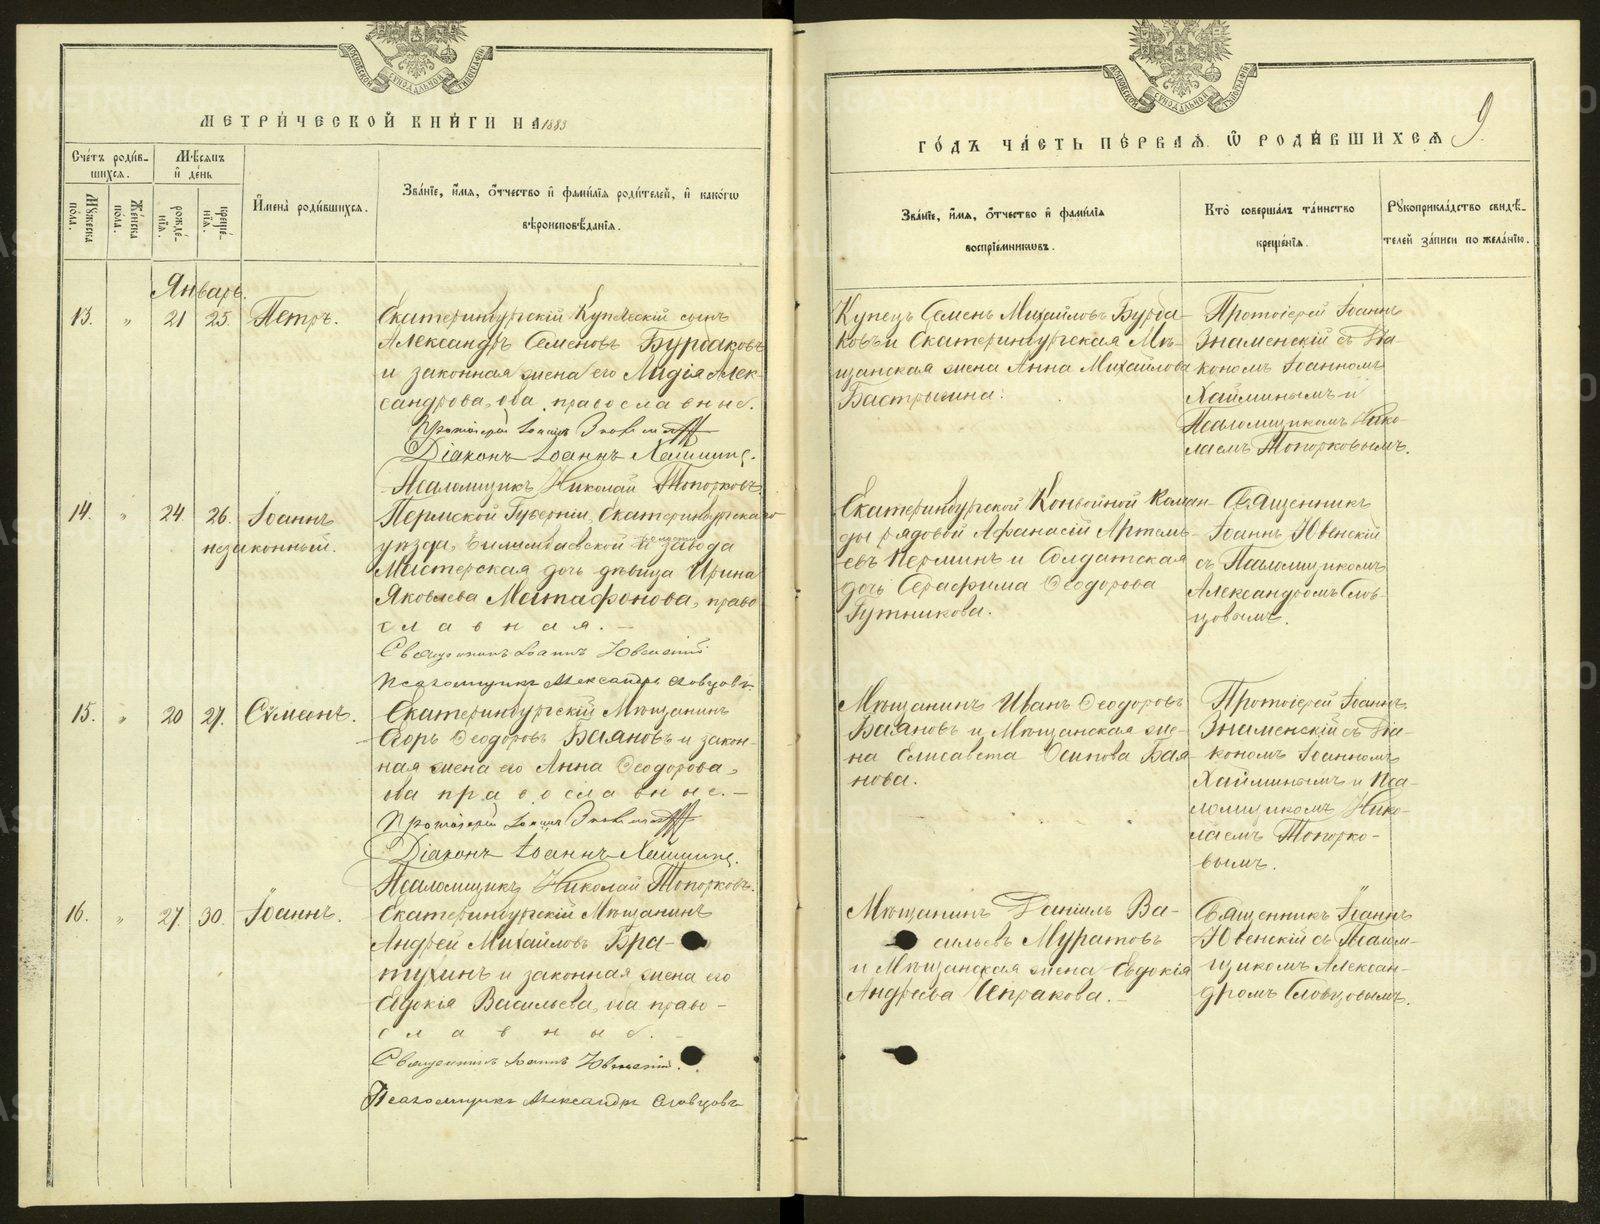 МЕТРИ́ЧЕСКОЙ КНИ́ГИ НА 1883
Сче́тъ роди́в-
шихся.
Мѣ́сяцъ
и́ день
Мꙋ́жеска
по́ла.
Же́нска
по́ла.
рожде́-
нїя.
креще́-
нїя.
И҆мена̀ роди́вшихся.
Зва́нїе, и҆́мя, ѻ҆́тчество и҆ фами́лїя роди́телей, и҆ како́гѡ
вѣроисповѣ́данїя.
Январь.
13. " 21 25. Петръ.
Екатеринбургскій Купеческій сынъ
Александръ Семеновъ Бурдаковъ
и законная жена его Лидія Алек-
сандрова, оба православные.
Протоіерей Іоаннъ Знаменскій
Діаконъ Іоаннъ Хайминъ.
Псаломщикъ Николай Топорковъ.
14. " 24. 26. Іоаннъ
незаконный.
Пермской Губерніи, Екатеринбургскаго
уѣзда, Билимбаевской волости и завода
Мастерская дочь дѣвица Ирина
Яковлева Местафонова, право
славная. —
Священникъ Іоаннъ Ювенскій
Псаломщикъ Александръ Словцовъ
15. " 20 27. Сѷмеонъ.
Екатеринбургскій Мѣщанинъ
Егоръ Ѳеодоровъ Баяновъ и закон-
ная жена его Анна Ѳеодорова,
оба православные. —
Протоіерей Іоаннъ Знаменскій
Діаконъ Іоаннъ Хайминъ.
Псаломщикъ Николай Топорковъ.
16. " 27. 30. Іоаннъ.
Екатеринбургскій Мѣщанинъ
Андрей Михайловъ Бра-
тухинъ и законная жена его
Евдокія Васильева, оба право-
славные. —
Священникъ Іоаннъ Ювенскій.
Псаломщикъ Александръ Словцовъ
9.
ГО́ДЪ ЧА́СТЬ ПЕ́РВАЯ Ѡ҆ РОДИ́ВШИХСЯ
Зва́нїе, и҆́мя, ѻ҆́тчество и҆ фами́лїя
воспрїе́мникѡвъ.
Кто̀ соверша́лъ та́инство
креще́нїя.
Рꙋкоприкла́дство свидѣ́-
телей за́писи по жела́нїю.
Купецъ Семенъ Михайловъ Бурда-
ковъ и Екатеринбургская Мѣ-
щанская жена Анна Михайлова
Бастрыгина.
Протоіерей Іоаннъ
Знаменскій съ Діа-
кономъ Іоанномъ
Хайминымъ и
Псаломщикомъ Нико-
лаемъ Топорковымъ.
Екатеринбургской Конвойной Коман-
ды рядовой Афанасій Артемь-
евъ Перминъ и Солдатская
дочь Серафима Ѳеодорова
Гутникова.
Священникъ
Іоаннъ Ювенскій
съ Псаломщикомъ
Александромъ Слов-
цовымъ.
Мѣщанинъ Иванъ Ѳеодоровъ
Баяновъ и Мѣщанская же-
на Елисавета Осипова Бая-
нова.
Протоіерей Іоаннъ
Знаменскій съ Діа-
кономъ Іоанномъ
Хайминымъ и Пса-
ломщикомъ Нико-
лаемъ Топорко-
вымъ.
Мѣщанинъ Даніилъ Ва-
сильевъ Муратовъ
и Мѣщанская жена Евдокія
Андреева Чепракова. —
Священникъ Іоаннъ
Ювенскій съ Псалом-
щикомъ Алексан-
дромъ Словцовымъ.